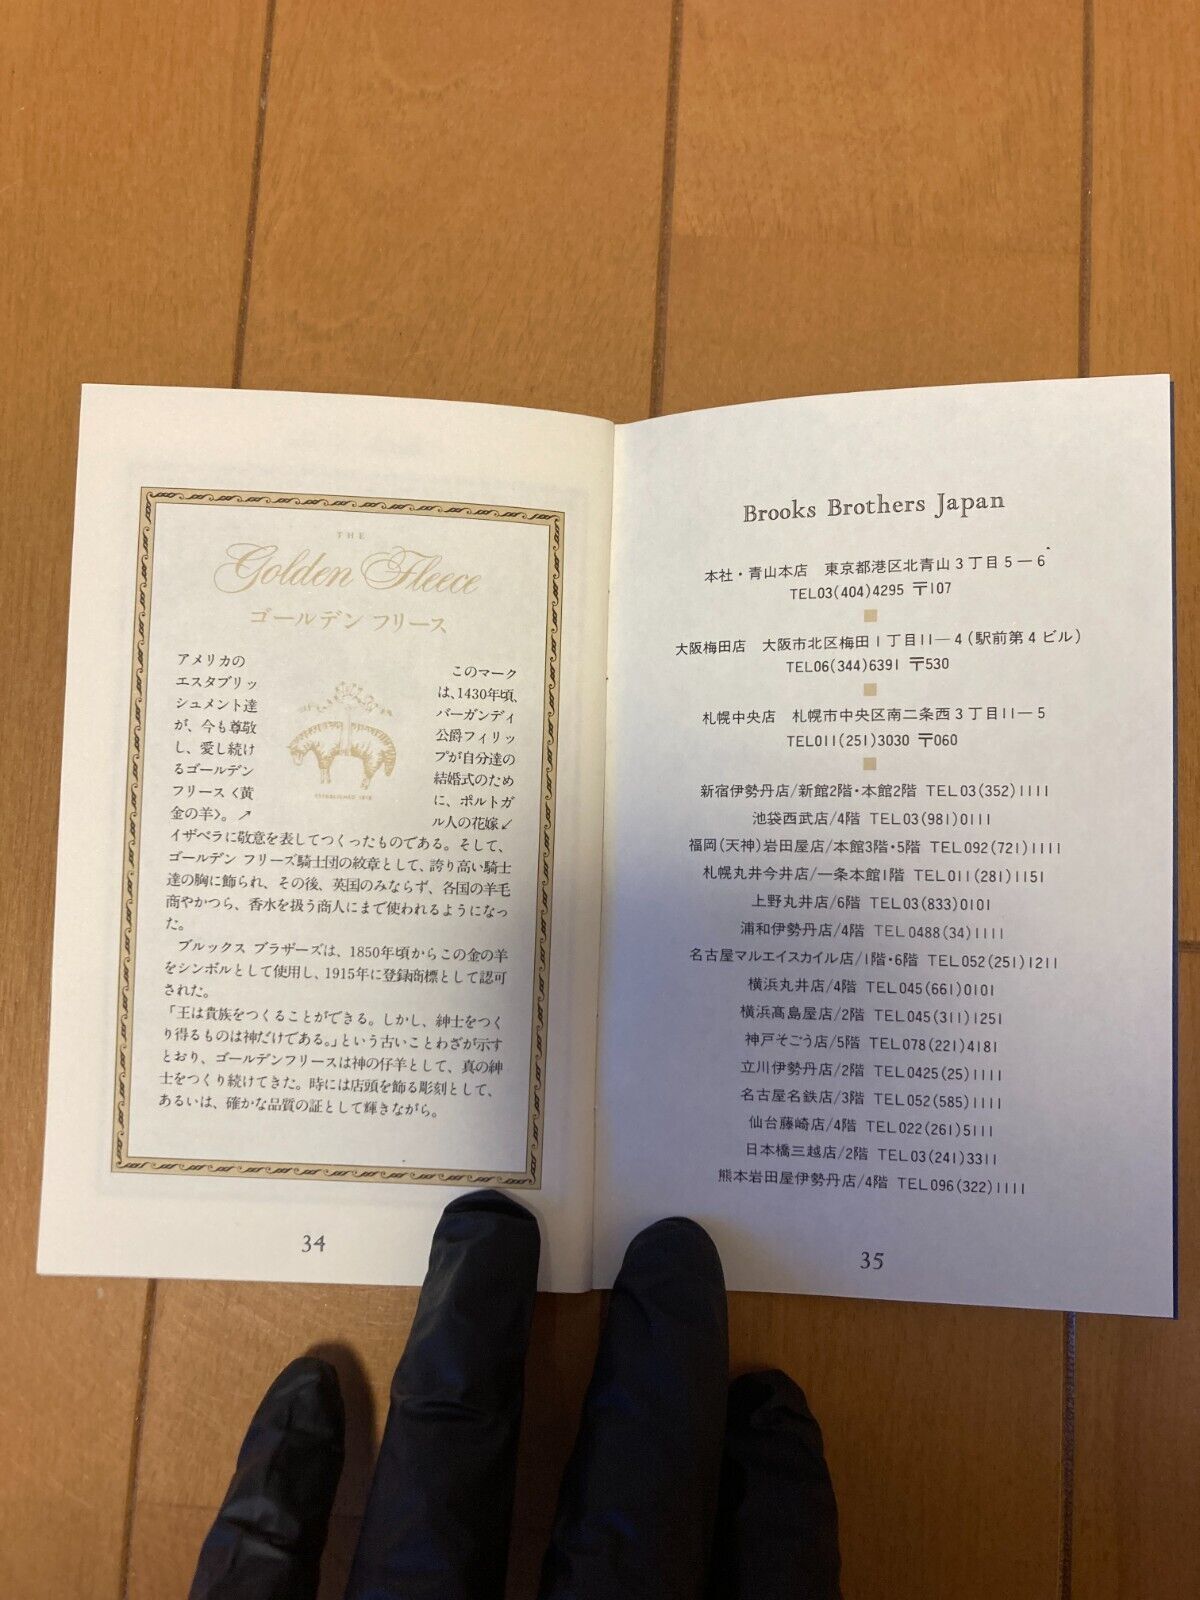 THE
Golden Fleece
ゴールデン フリース
アメリカの
エスタブリッ
シュメント達
が、今も尊敬
し、愛し続け
るゴールデン
フリース〈黄
金の羊〉。↗
ESTABLISHED 1818
このマーク
は、1430年頃、
バーガンディ
公爵フィリッ
プが自分達の
結婚式のため
に、ポルトガ
ル人の花嫁↙
イザベラに敬意を表してつくったものである。そして、
ゴールデン フリーズ騎士団の紋章として、誇り高い騎士
達の胸に飾られ、その後、英国のみならず、各国の羊毛
商やかつら、香水を扱う商人にまで使われるようになっ
た。
ブルックス ブラザーズは、1850年頃からこの金の羊
をシンボルとして使用し、1915年に登録商標として認可
された。
「王は貴族をつくることができる。しかし、紳士をつく
り得るものは神だけである。」という古いことわざが示す
とおり、ゴールデンフリースは神の仔羊として、真の紳
士をつくり続けてきた。時には店頭を飾る彫刻として、
あるいは、確かな品質の証として輝きながら。
34
Brooks Brothers Japan
本社・青山本店 東京都港区北青山3丁目5－6
TEL03(404)4295 〒107
大阪梅田店 大阪市北区梅田1丁目11－4(駅前第4ビル)
TEL06(344)6391 〒530
札幌中央店 札幌市中央区南二条西3丁目11－5
TEL011(251)3030 〒060
新宿伊勢丹店/新館2階・本館2階 TEL03(352)1111
池袋西武店/4階 TEL03(981)0111
福岡(天神)岩田屋店/本館3階・5階 TEL092(721)1111
札幌丸井今井店/一条本館1階 TEL011(281)1151
上野丸井店/6階 TEL03(833)0101
浦和伊勢丹店/4階 TEL0488(34)1111
名古屋マルエイスカイル店/1階・6階 TEL052(251)1211
横浜丸井店/4階 TEL045(661)0101
横浜髙島屋店/2階 TEL045(311)1251
神戸そごう店/5階 TEL078(221)4181
立川伊勢丹店/2階 TEL0425(25)1111
名古屋名鉄店/3階 TEL052(585)1111
仙台藤崎店/4階 TEL022(261)5111
日本橋三越店/2階 TEL03(241)3311
熊本岩田屋伊勢丹店/4階 TEL096(322)1111
35